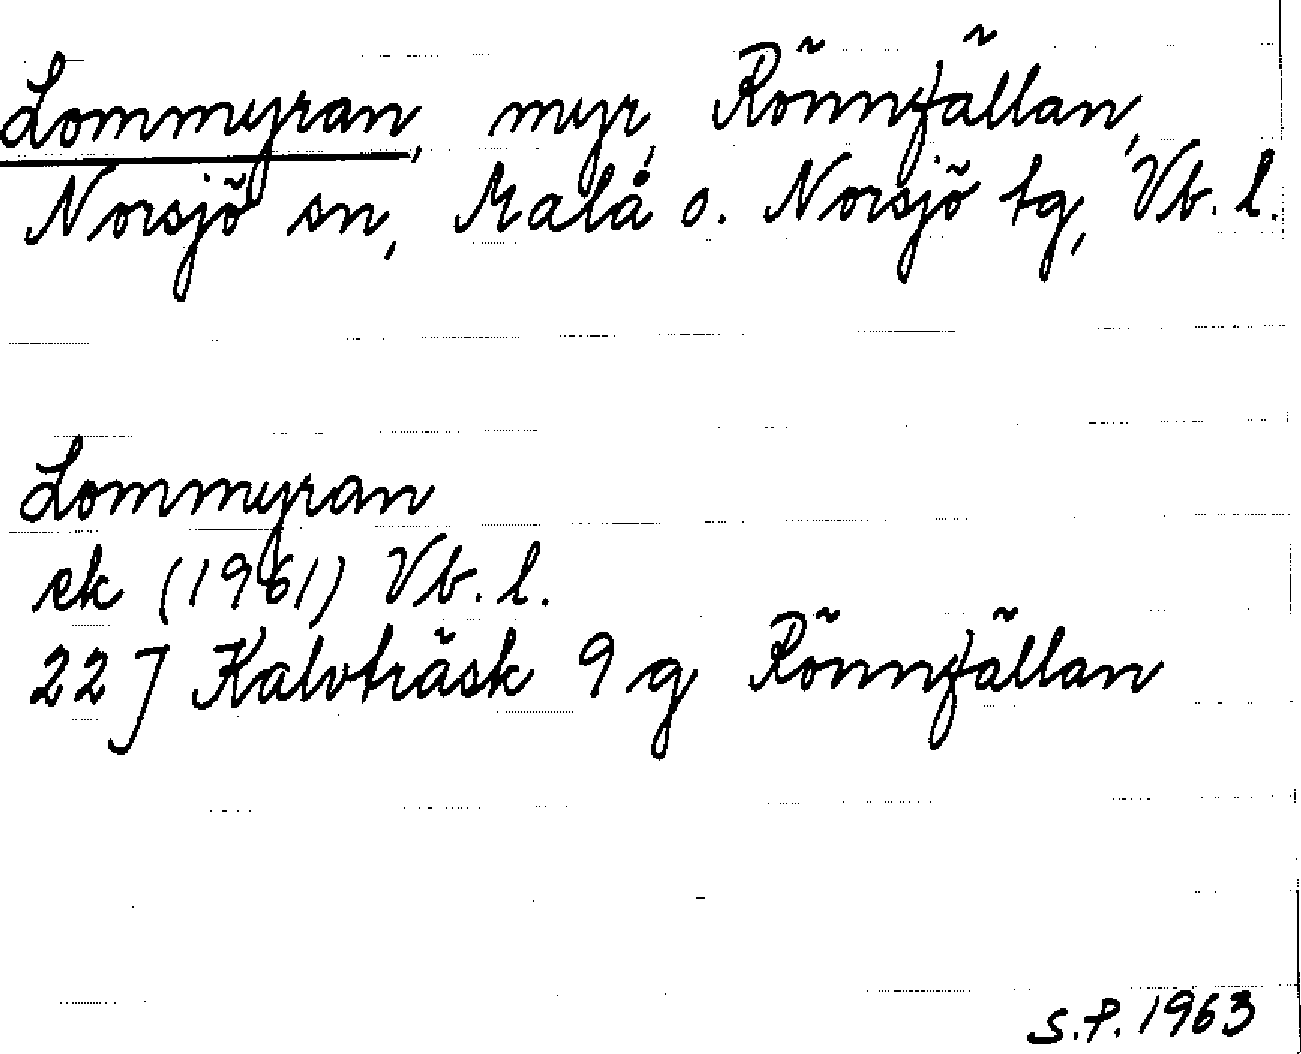 Lommyran, myr, Rönnfällan,
Norsjö sn, Malå o. Norsjö tg, Vb. l.
Lommyran
ek (1961) Vb. l.
22 J Kalvträsk 9 g Rönnfällan
S.P. 1963